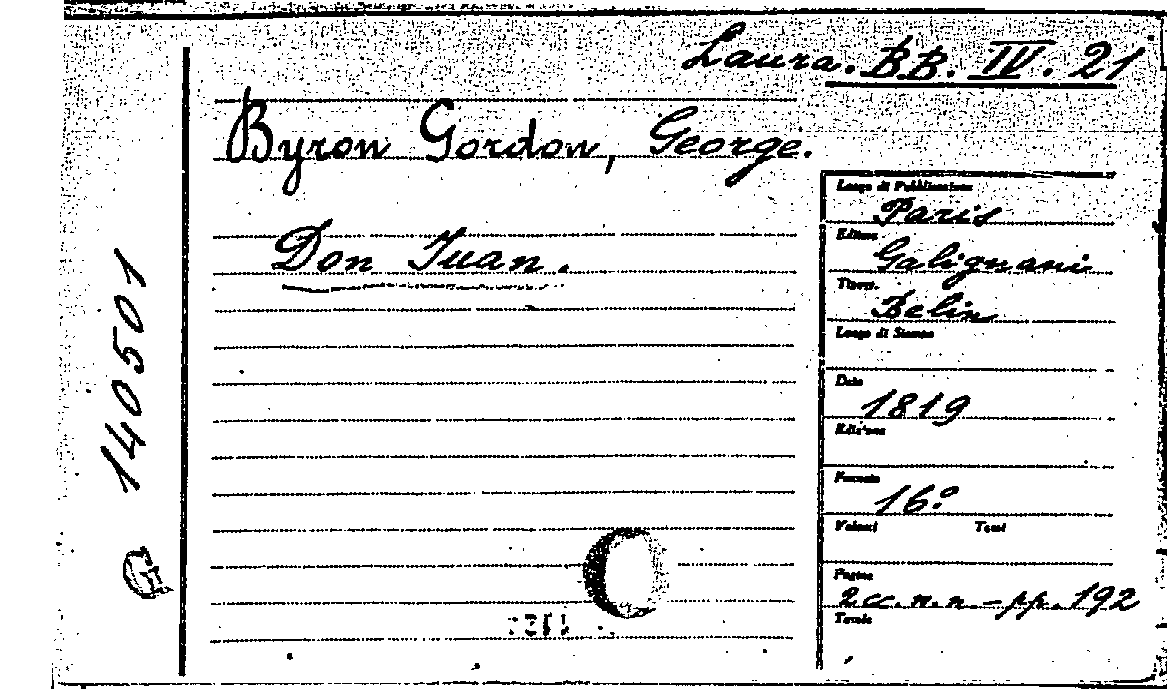 Laura. BB. IV. 21
Byron Gordon, George.
Don Juan.
140501
Luogo di Pubblicazione
Paris
Editore
Galignani
Belin
Luogo di Stampa
Data
1819
Edizione
Formato
16º
Volumi Tomi
Pagine
2 cc. n. n. - pp. 192
Tavole